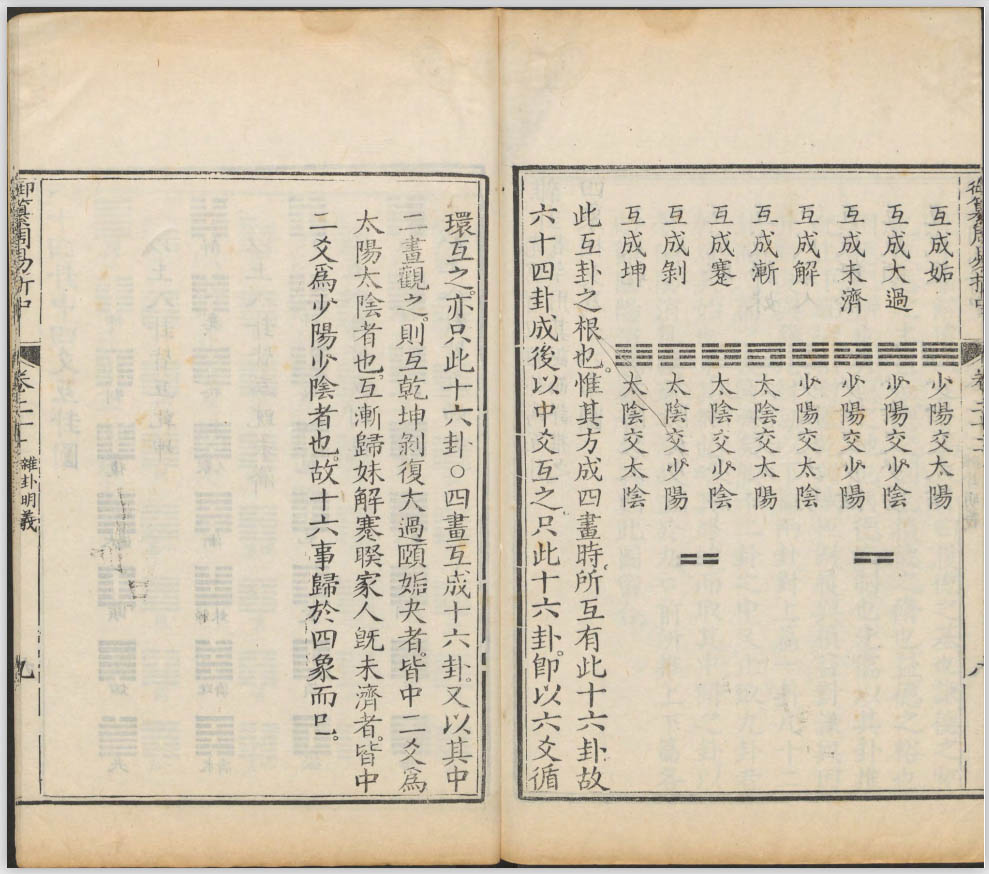 御纂周易折中 卷二十二 八
互成姤 少陽交太陽
互成大過 少陽交少陰
互成未濟 少陽交少陽
互成解 少陽交太陰
互成漸 太陰交太陽
互成蹇 太陰交少陰
互成剝 太陰交少陽
互成坤 太陰交太陰
此互卦之根也。惟其方成四畫時。所互有此十六卦。故
六十四卦成後。以中爻互之。只此十六卦。卽以六爻循
環互之。亦只此十六卦○四畫互成十六卦。又以其中
二畫觀之。則互乾坤剝復大過頤姤夬者。皆中二爻爲
太陽太陰者也。互漸歸妹解蹇睽家人旣未濟者。皆中
二爻爲少陽少陰者也。故十六事歸於四象而已。
御纂周易折中 卷二十二 雜卦明義 九